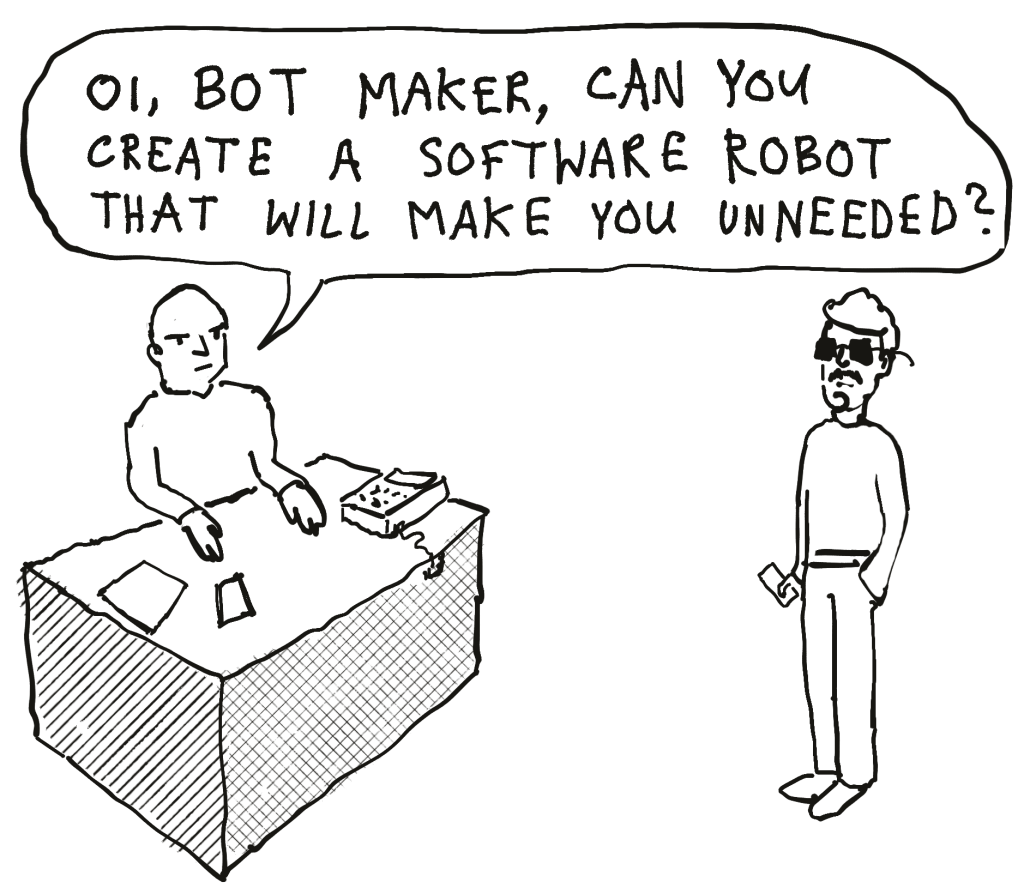 OI, BOT MAKER, CAN YOU
CREATE A SOFTWARE ROBOT
THAT WILL MAKE YOU UNNEEDED?